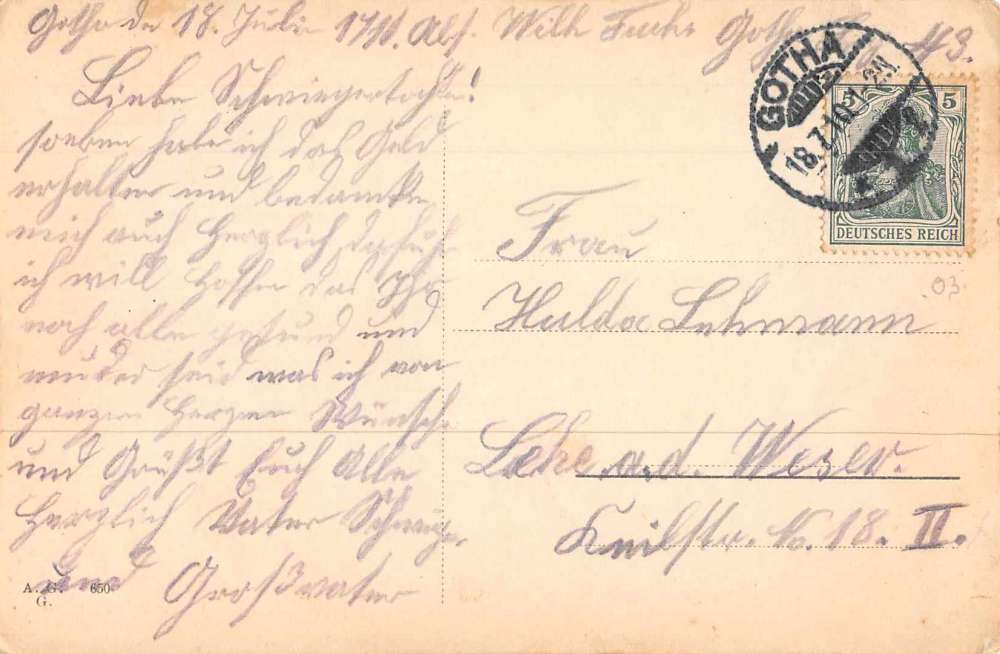 Gotha de 18. Juli Abs. Wilh Fuchs Gotha
Liebe Schwiegertochter!
soeben habe ich das Geld
erhalten und bedanke
mich auch Herzlich dafür
ich will hoffen das Ihr
noch alle gesund und
munder seid was ich von
ganzen Herzen Wünsche
und Grüßt Euch Alle
Herzlich Vater Schwieger
und Großvater
GOTHA
18.7.10.1-2N
5 5
DEUTSCHES REICH
03
Frau
Hulda Lehmann
Lehe a. d. Weser.
No. 18. II.
A. G. 650
G.